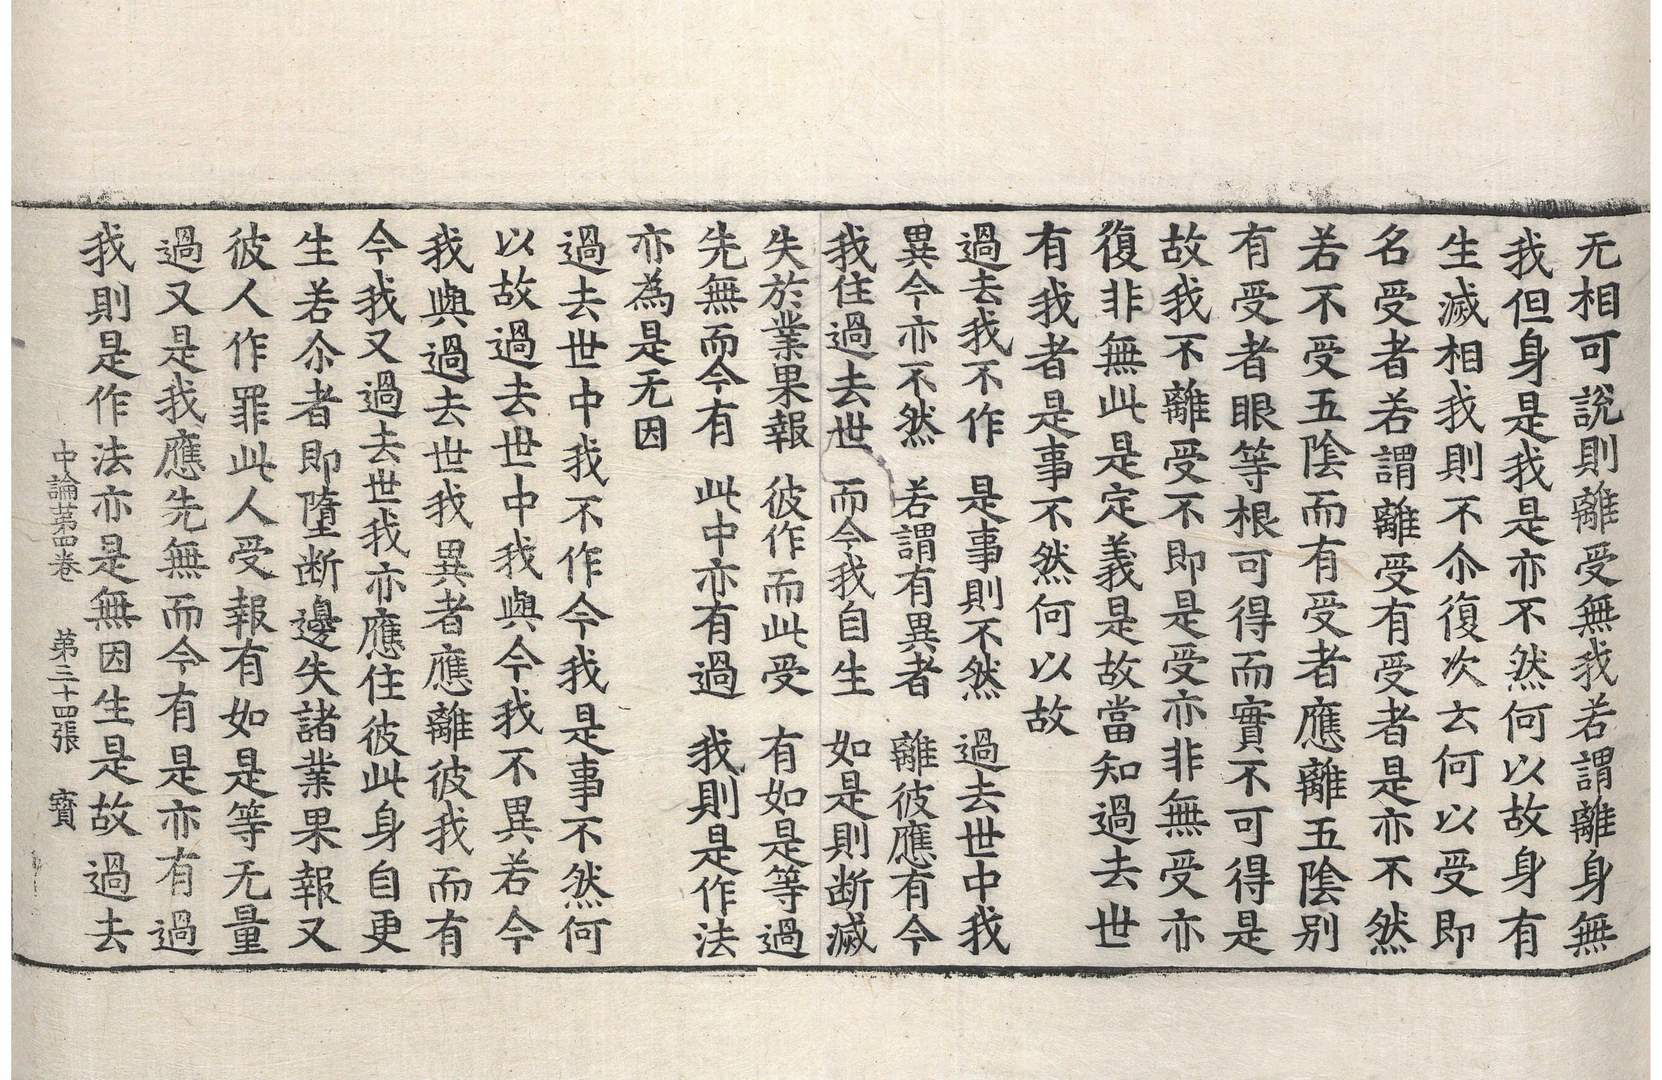 无相可說則離受無我若謂離身無
我但身是我是亦不然何以故身有
生滅相我則不尒復次云何以受即
名受者若謂離受有受者是亦不然
若不受五陰而有受者應離五陰別
有受者眼等根可得而實不可得是
故我不離受不即是受亦非無受亦
復非無此是定義是故當知過去世
有我者是事不然何以故
過去我不作　是事則不然　過去世中我
異今亦不然　若謂有異者　離彼應有今
我住過去世　而今我自生　如是則断滅
失於業果報　彼作而此受　有如是等過
先無而今有　此中亦有過　我則是作法
亦為是无因
過去世中我不作今我是事不然何
以故過去世中我與今我不異若今
我與過去世我異者應離彼我而有
今我又過去世我亦應住彼此身自更
生若尒者即墮断邊失諸業果報又
彼人作罪此人受報有如是等无量
過又是我應先無而今有是亦有過
我則是作法亦是無因生是故過去
中論苐四卷　苐三十四張　寳